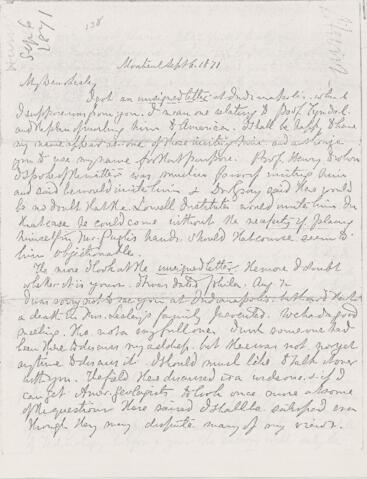 138
Sept 6
1871
Montreal Sept 6. 1871
My Dear Lesley,
I got an unsigned letter at Indianapolis which
I suppose was from you. I mean one relating to Prof. Tyndal.
and the plan of inviting him to America. I shall be happy to have
my name appear as one of those inviting him and authorize
you to use my name for that purpose. Prof. Henry to whom
I spoke of the matter was much in favor of inviting him
and said he would invite him & Dr Gray said there would
be no doubt that the Lowell Institute would invite him. In
that case he could come without the necessity of placing
himself in Mr. Pugh's hands. Should that course seem to
him objectionable.
The more I look at the unsigned letter the more I doubt
whether it is yours. It was dated Phila. Aug
I was sorry not to see you at Indianapolis but heard that
a death in Mrs. Lesley's family prevented. We had a good
meeting. Tho. not a very full one. I wish some one had
been there to discuss my address. but there was not, nor yet
any time to discuss it. I should much like to talk it over
with you. The field I have discussed is a wide one. & if I
can get Amer. geologists to look once more at some
of the questions I have raised I shall be satisfied even
though they may dispute many of my views.